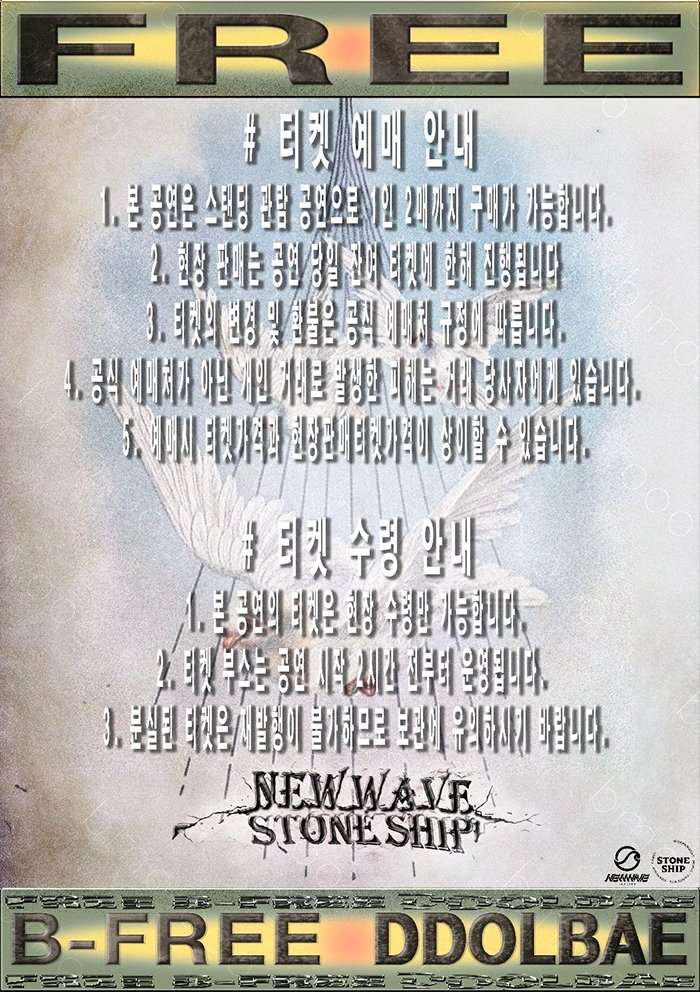 FREE
# 티켓 예매 안내
1. 본 공연은 스탠딩 관람 공연으로 1인 2매까지 구매가 가능합니다.
2. 현장 판매는 공연 당일 잔여 티켓에 한해 진행됩니다
3. 티켓의 변경 및 환불은 공식 예매처 규정에 따릅니다.
4. 공식 예매처가 아닌 개인 거래로 발생한 피해는 거래 당사자에게 있습니다.
5. 예매시 티켓가격과 현장판매티켓가격이 상이할 수 있습니다.
# 티켓 수령 안내
1. 본 공연의 티켓은 현장 수령만 가능합니다.
2. 티켓 부스는 공연 시작 2시간 전부터 운영됩니다.
3. 분실된 티켓은 재발행이 불가하므로 보관에 유의하시기 바랍니다.
NEW WAVE
STONE SHIP
NEWWAVE
STONE
SHIP
FREE B-FREE DDOLBAE
B-FREE DDOLBAE
FREE B-FREE DDOLBAE